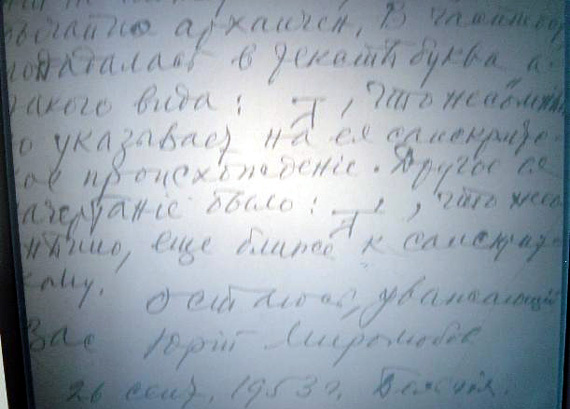 архаичен, В частности
попадалась в тексте буква а.
такого вида: А, что несомнен
о указывает на ея санскритс
ое происхожденіе. Другое ея
ачертаніе было: А, что несо
нѣнно, еще ближе к санскрит
скому.
Остаюсь, уважающій
Вас Юрій Миролюбов
26 сент, 1953 г,